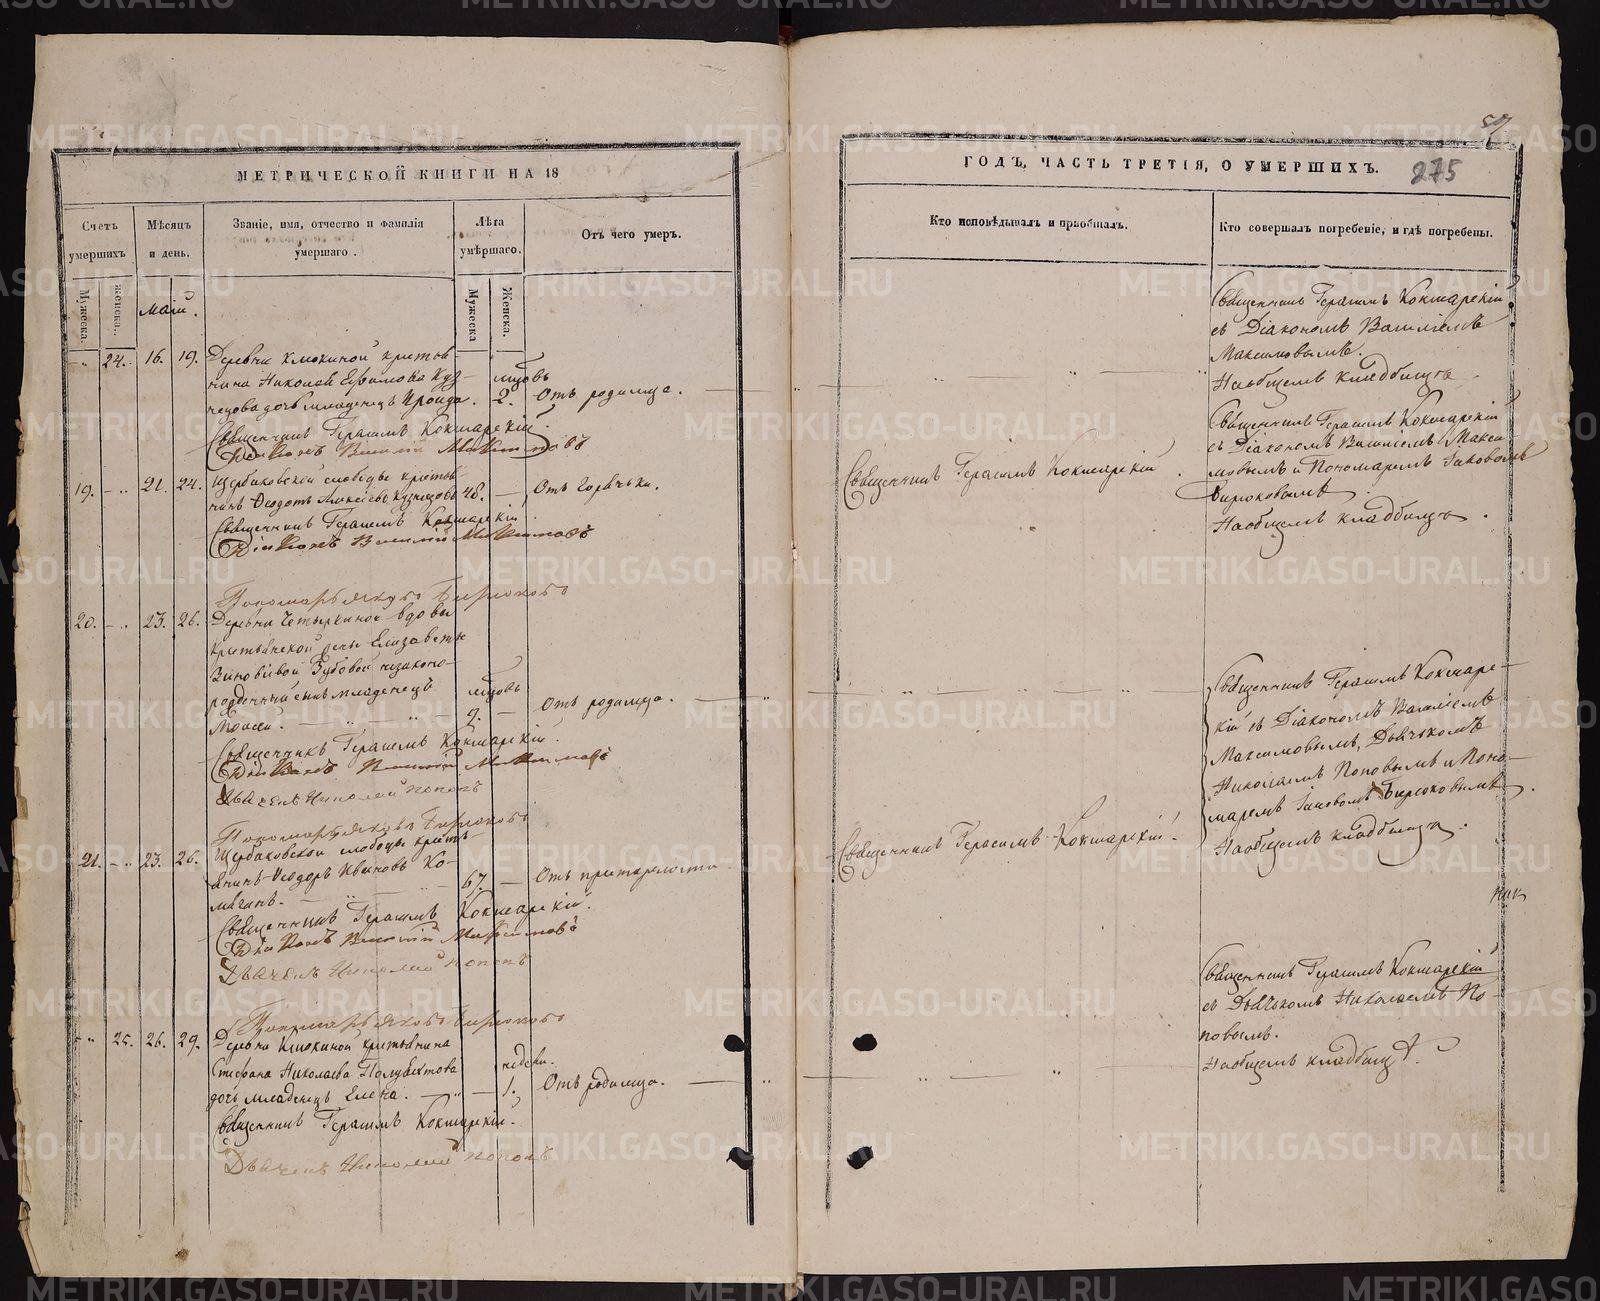 МЕТРИЧЕСКОЙ КНИГИ НА 18
Счетъ умершихъ
Мѣсяцъ и день.
Званіе, имя, отчество и фамилія умершаго.
Лѣта умѣршаго.
Отъ чего умеръ.
Мужеска.
Женска.
Мужеска
Женска.
Маій.
24. 16. 19. Деревни Клюкиной крестья-
нина Николая Ефимова Куз-
нецова дочь младенецъ Ироида.
мцовъ
2. Отъ родимца.
Священникъ Герасимъ Кокшарскій.
Діаконъ Василій Максимовъ
19. 21. 24. Щербаковской слободы крестья-
нинъ Ѳеодотъ Алексѣевъ Кузнецовъ 48. Отъ горячки.
Священникъ Герасимъ Кокшарскій
Діаконъ Василій Максимовъ
Пономарь Яковъ Бирюковъ
20. 23. 26. Деревни Четыркиной вдовы
крестьянской жены Елизаветы
Зиновіевой Зубовой незаконо-
рожденный сынъ младенецъ
Моисей.
мцовъ
Отъ родимца.
Священникъ Герасимъ Кокшарскій.
Діаконъ Василій Максимовъ
Дьячекъ Николай Поповъ
Пономарь Яковъ Бирюковъ
21. 23. 26. Щербаковской слободы кресть-
янинъ Ѳеодоръ Ивановъ Ко-
67. Отъ престарелости
Священникъ Герасимъ Кокшарскій.
Діаконъ Василій Максимовъ
Дьячекъ Николай Поповъ
Пономарь Яковъ Бирюковъ
25. 26. 29. Деревни Клюкиной крестьянина
Стефана Николаева Полуектова
дочь младенецъ Елена.
недели.
1. Отъ родимца.
Священникъ Герасимъ Кокшарскій.
Дьячекъ Николай Поповъ
57
ГОДЪ, ЧАСТЬ ТРЕТІЯ, О УМЕРШИХЪ.
275
Кто исповѣдывалъ и пріобщалъ.
Кто совершалъ погребеніе, и гдѣ погребены.
Священникъ Герасимъ Кокшарскій
съ Діакономъ Василіемъ
Максимовымъ.
На общемъ кладбищѣ
Священникъ Герасимъ Кокшарскій
Священникъ Герасимъ Кокшарскій
съ Діакономъ Василіемъ Макси-
мовымъ и Пономаремъ Іаковомъ
Бирюковымъ
На общемъ кладбищѣ.
Священникъ Герасимъ Кокшарс-
кій съ Діакономъ Василіемъ
Максимовымъ, Дьячкомъ
Николаемъ Поповымъ и Поно-
маремъ Іаковомъ Бирюковымъ.
На общемъ кладбищѣ.
Священникъ Герасимъ Кокшарскій.
Священникъ Герасимъ Кокшарскій
съ Дьячкомъ Николаемъ По-
повымъ.
На общемъ кладбищѣ.
METRIKI.GASO-URAL.RU